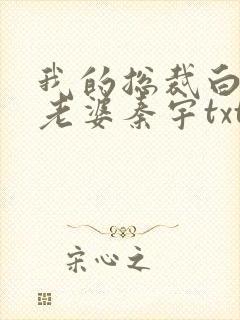 我的总裁白
老婆秦宇txt
宋心之